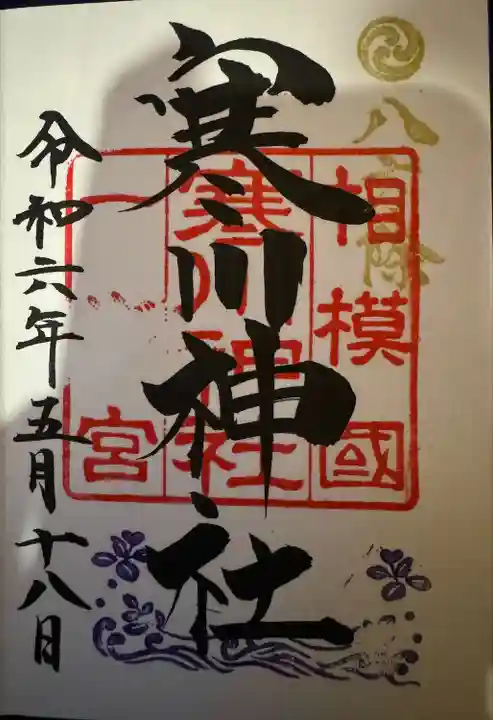 八方除
相模國
寒川神社
一宮
寒川神社
令和六年五月十八日